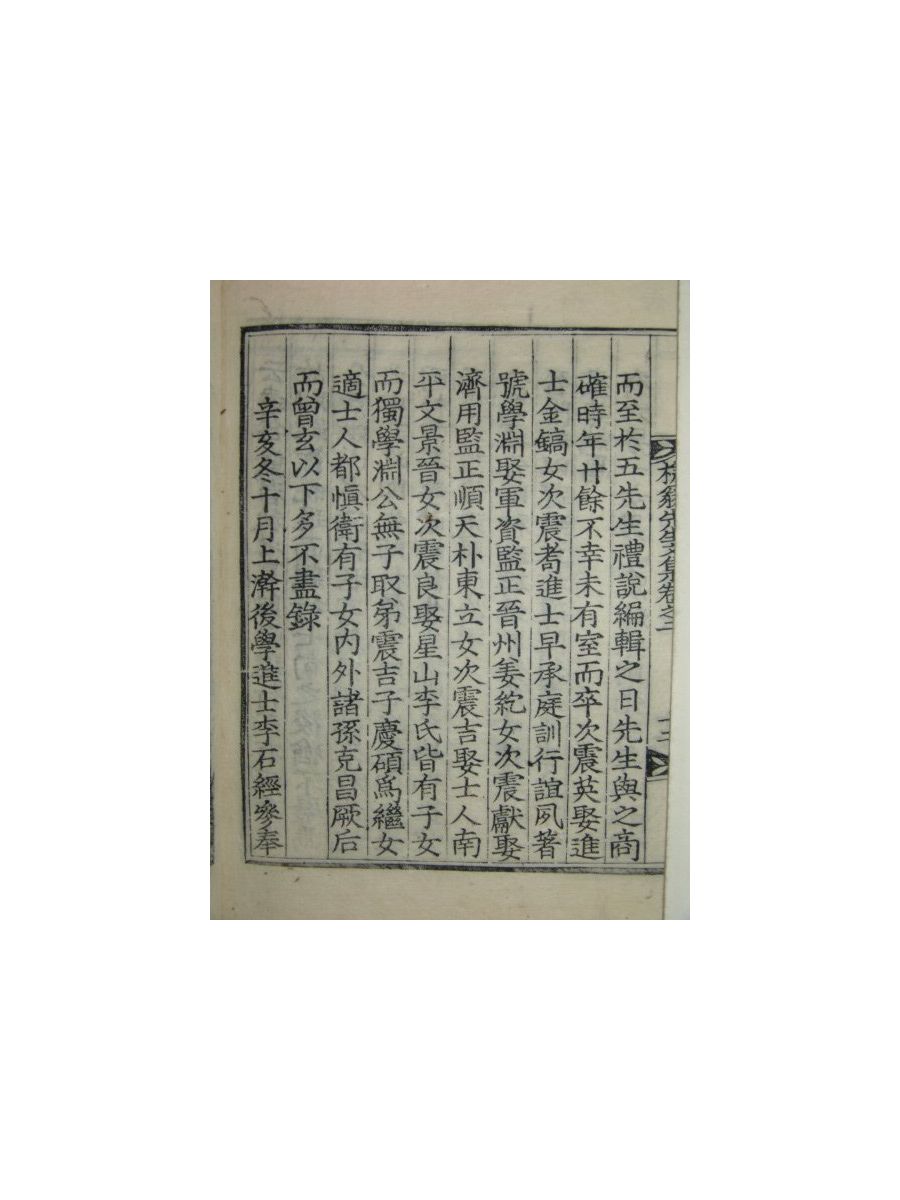 先生文集卷之二
而至於五先生禮說編輯之日先生與之商
確時年廿餘不幸未有室而卒次震英娶進
士金鎬女次震耈進士早承庭訓行誼夙著
號學淵娶軍資監正晉州姜紇女次震獻娶
濟用監正順天朴東立女次震吉娶士人南
平文景晉女次震良娶星山李氏皆有子女
而獨學淵公無子取弟震吉子慶碩爲繼女
適士人都愼衛有子女內外諸孫克昌厥后
而曾玄以下多不盡錄
辛亥冬十月上澣後學進士李石經參奉